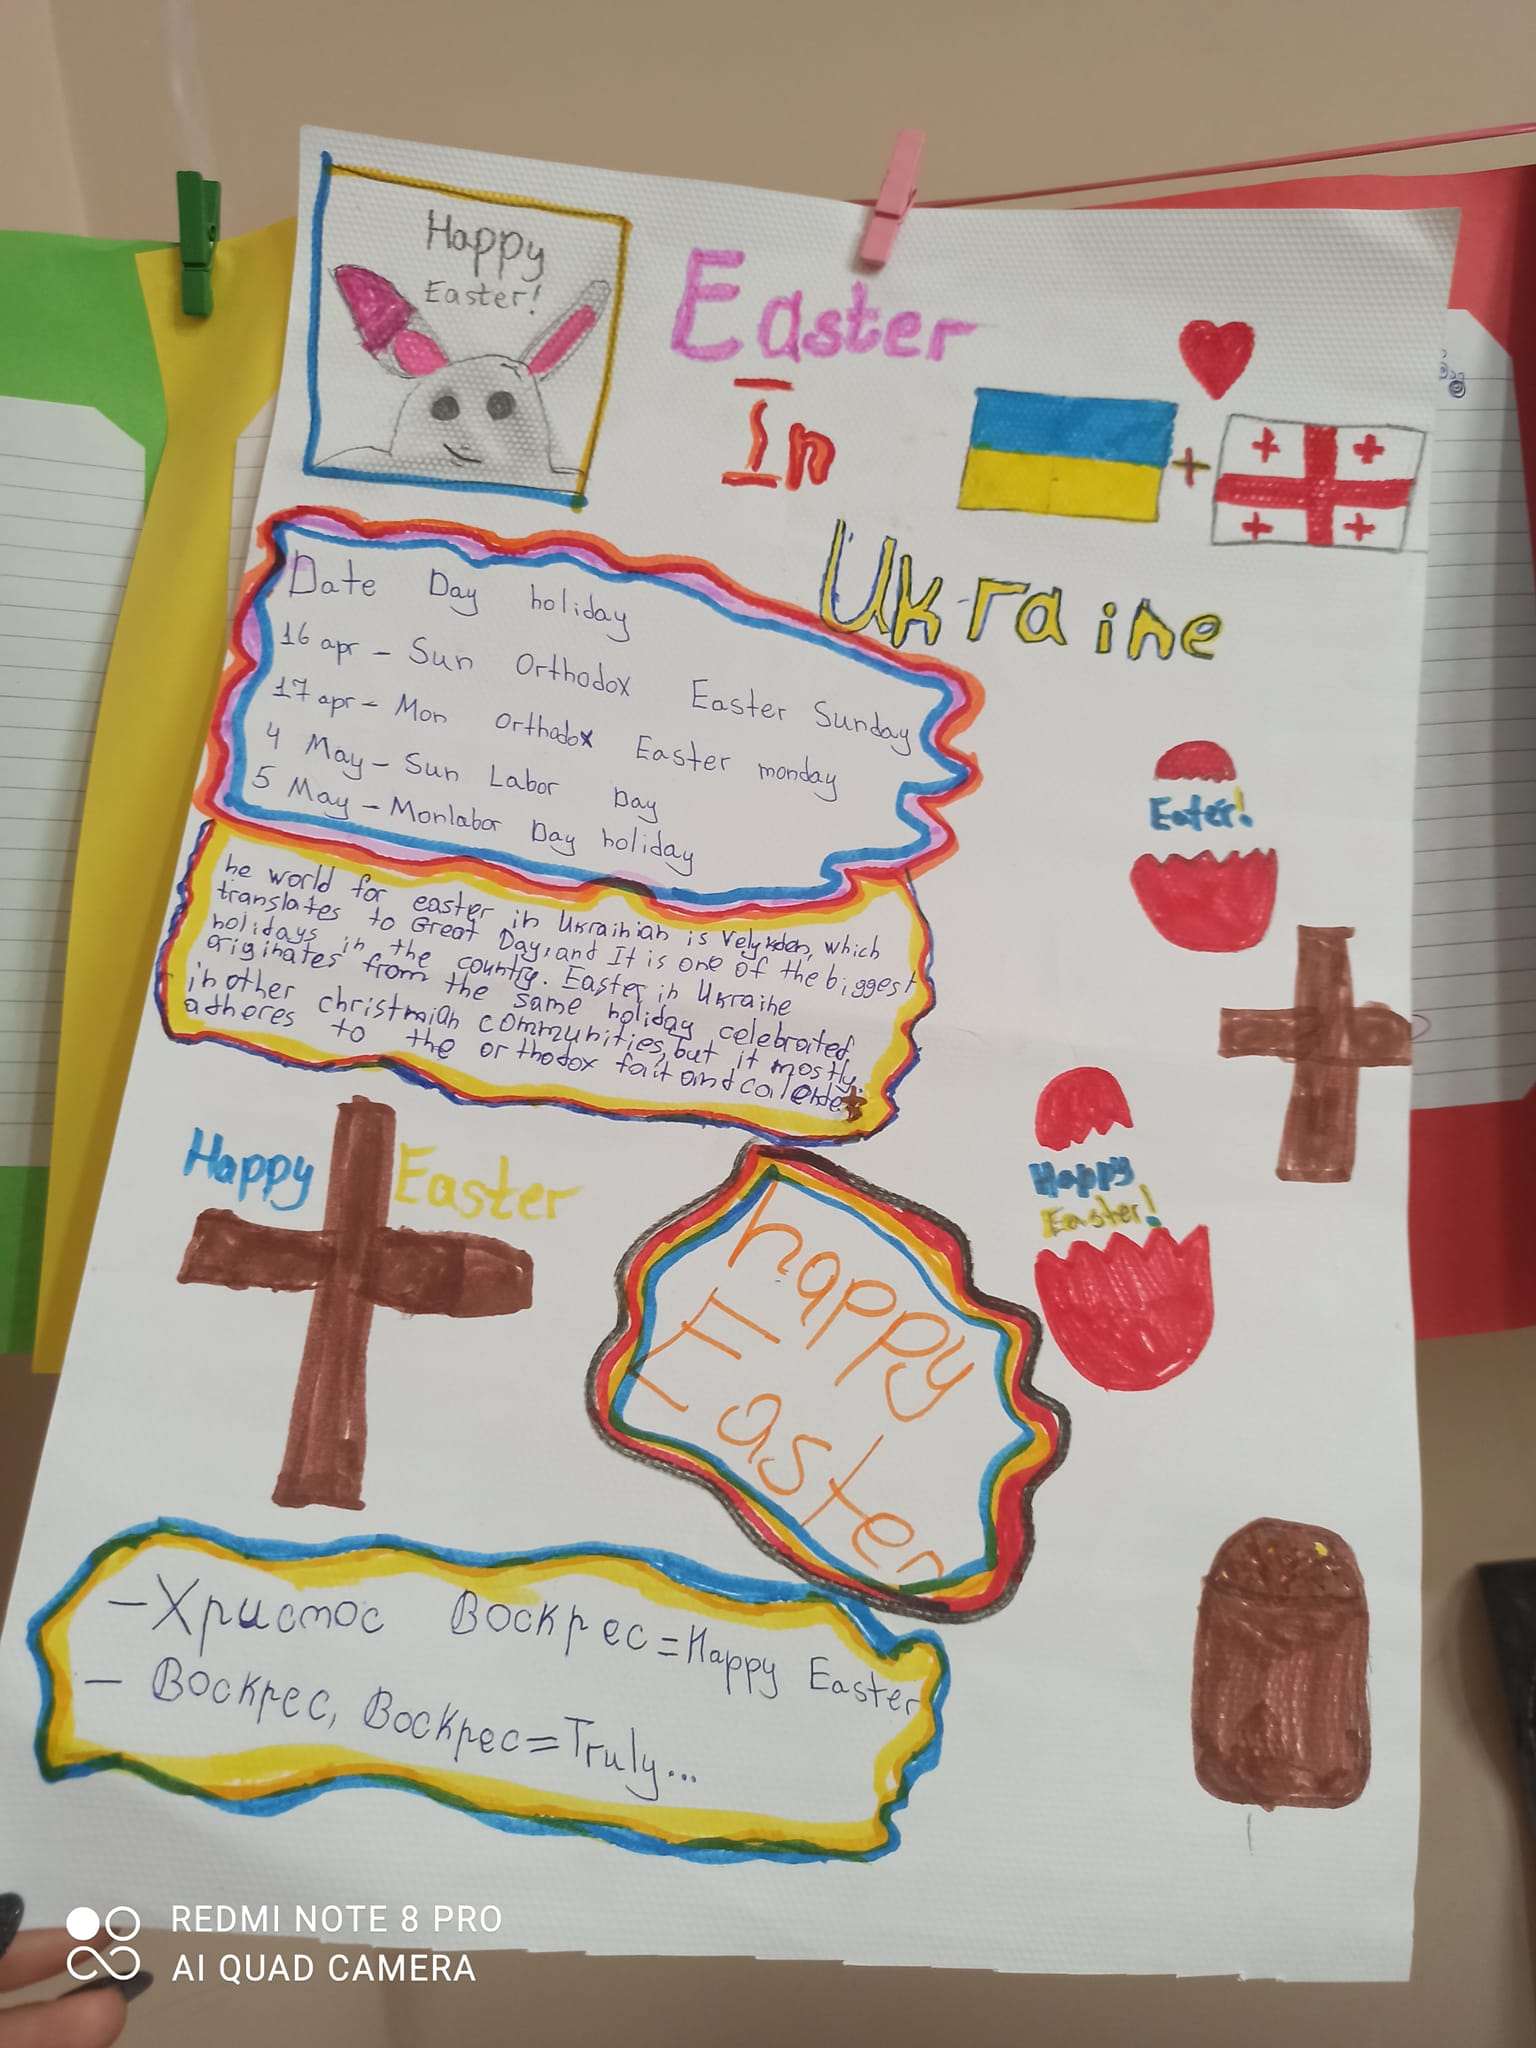 Happy
Easter!
Easter
In
Ukraine
Date Day holiday
16 apr - Sun Orthodox Easter Sunday
17 apr - Mon Orthodox Easter monday
4 May - Sun Labor Day
5 May - Monlabor Day holiday
he world for easter in Ukrainian is Velykden, which
translates to Great Day, and It is one of the biggest
holidays in the country. Easter in Ukraine
originates from the same holiday celebrated,
in other christmian communities, but it mostly
adheres to the orthodox fait and calender
Eater!
Happy Easter
Happy
Easter!
happy
Easter
- Христос Воскрес = Happy Easter
- Воскрес, Воскрес = Truly...
REDMI NOTE 8 PRO
AI QUAD CAMERA